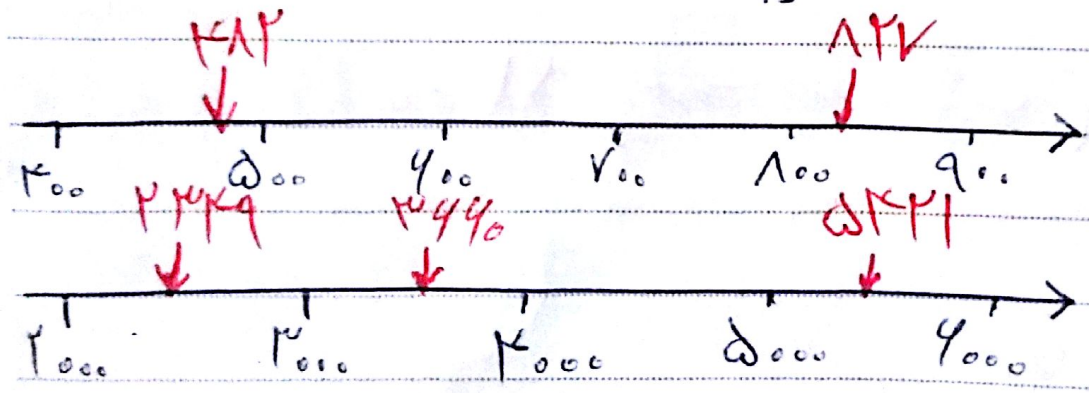 ۴۸۲ ۸۲۷
۴۰۰ ۵۰۰ ۶۰۰ ۷۰۰ ۸۰۰ ۹۰۰
۲۳۴۹ ۳۶۶۰ ۵۴۲۱
۲۰۰۰ ۳۰۰۰ ۴۰۰۰ ۵۰۰۰ ۶۰۰۰